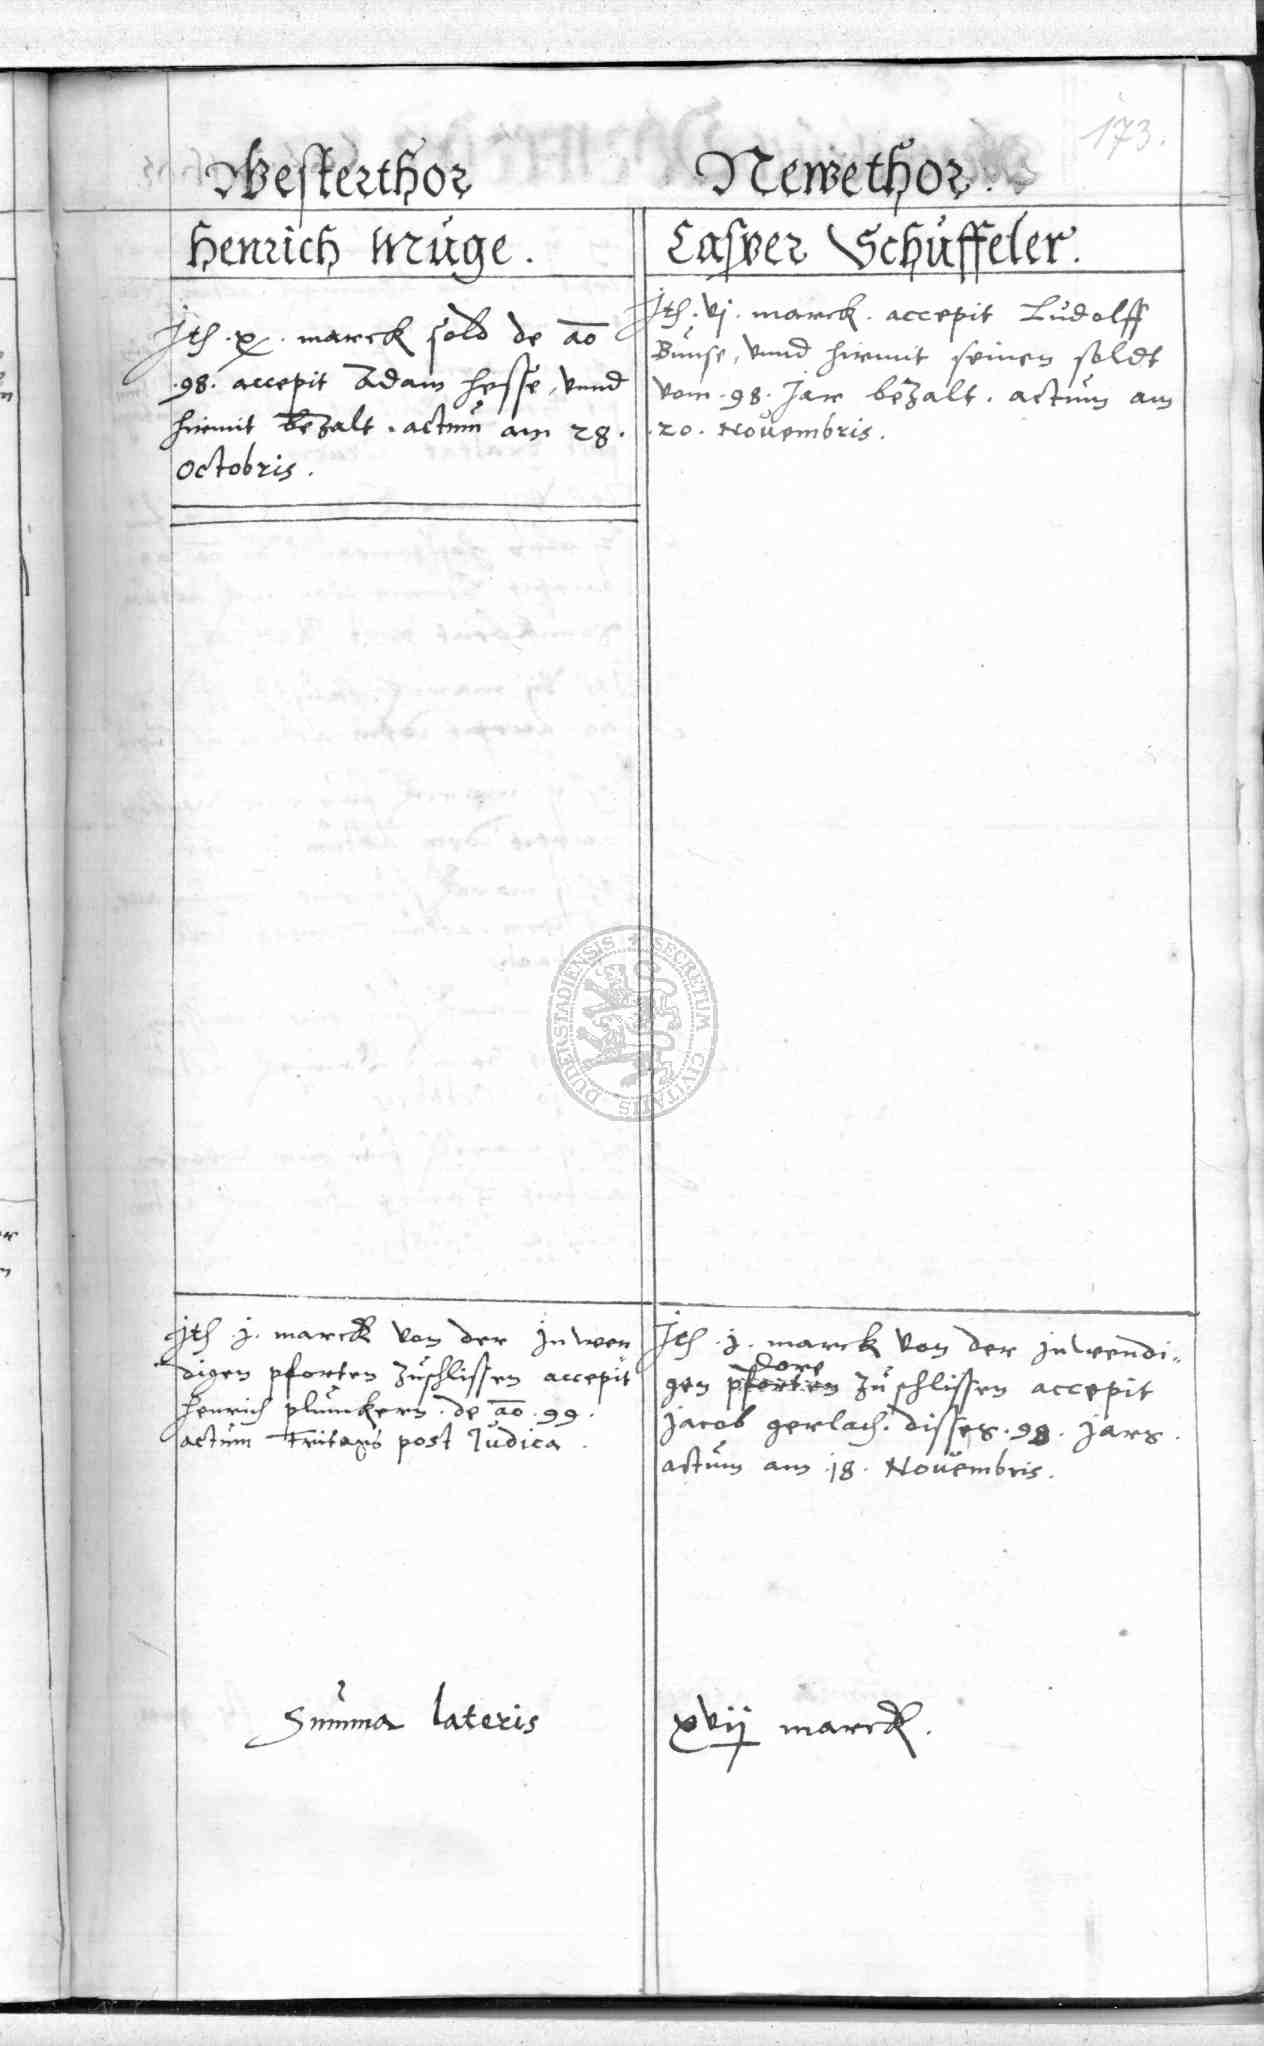 173.
Westerthor
Henrich Müge.
Jth. x. marck sold de ao
.98. accepit Adam Hesse, vnnd
hiemit bezalt. actum am 28.
Octobris.
Jth. j. marck von der Inwen
digen pforten zuschlissen accepit
Henrich plünckern. de ao. 99.
actum post Judica.
Summa lateris
Newethor.
Casper Schüffeler.
Jth. vj. marck. accepit Ludolff
Bünse, vnnd hiemit seinen soldt
vom .98. Jar bezalt. actum am
.20. Nouembris.
Jth. j. marck von der jnwendi-
dore
gen pforten zuschlissen accepit
Jacob gerlach. disses .98. Jars.
actum am .18. Nouembris.
xvij marck.
DUDERSTADIENSIS SECRETUM CIVITATIS